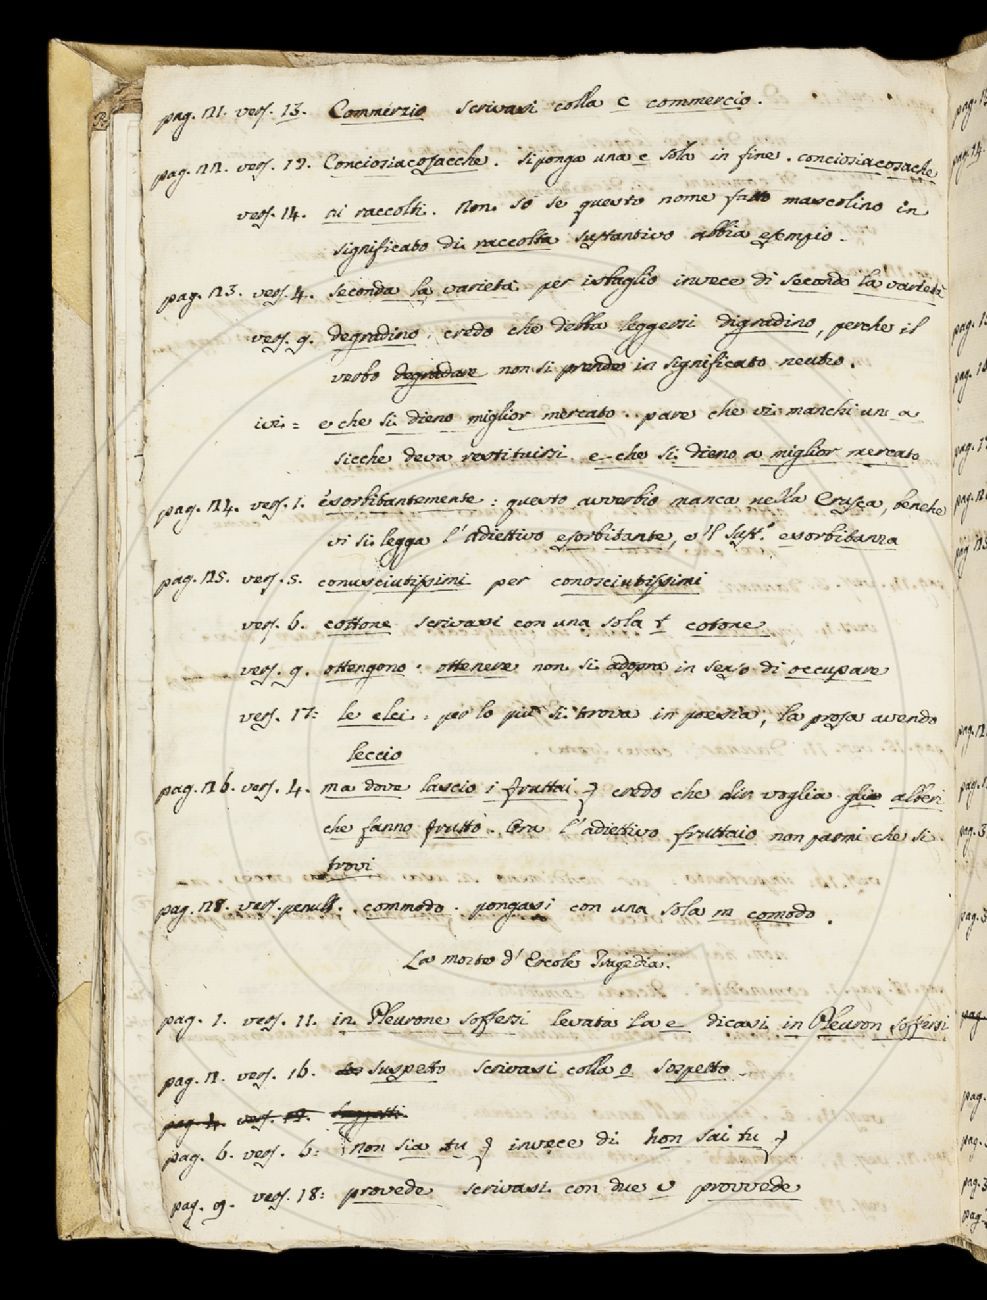 pag. 21. vers. 13. Commerzio scrivasi colla c commercio.
pag. 22. vers. 12. Conciosiacosacche. si ponga una c sola in fine. conciosiacosache
vers. 14. ai raccolti. Non so se questo nome fatto mascolino in
significato di raccolta sustantivo abbia esempio.
pag. 23. vers. 4. seconda la varieta per isbaglio invece di secondo la varietà
vers. 9. degradino. credo che debba leggersi digradino, perche il
verbo degradare non si prende in significato neutro.
ivi = e che si dieno miglior mercato. pare che vi manchi un a
sicche deva restituirsi e che si dieno a miglior mercato
pag. 24. vers. 1. esorbitantemente: questo avverbio manca nella Crusca, benche
vi si legga l'adiettivo esorbitante, e 'l sust.o esorbitanza
pag. 25. vers. 5. conusciutissimi per conosciutissimi
vers. 6. cottone scrivasi con una sola t cotone
vers. 9. ottengono. ottenere non si adopra in senso di occupare
vers. 17: le elci. per lo più si trova in poesia, la prosa avendo
leccio
pag. 26. vers. 4. ma dove lascio i fruttai } credo che dir voglia gli alberi
che fanno frutto. Ora l'adiettivo fruttaio non parmi che si
trovi
pag. 28. vers. penult. commodo. pongasi con una sola m comodo.
La morte d'Ercole Tragedia.
pag. 1. vers. 11. in Pleurone soffersi levata la e dicasi in Pleuron soffersi
pag. 2. vers. 16. suspetto scrivasi colla o sospetto.
pag. 4. vers. 12.
pag. 6. vers. 6: non sia tu } invece di non sai tu }
pag. 9. vers. 18: provede scrivasi con due v provvede